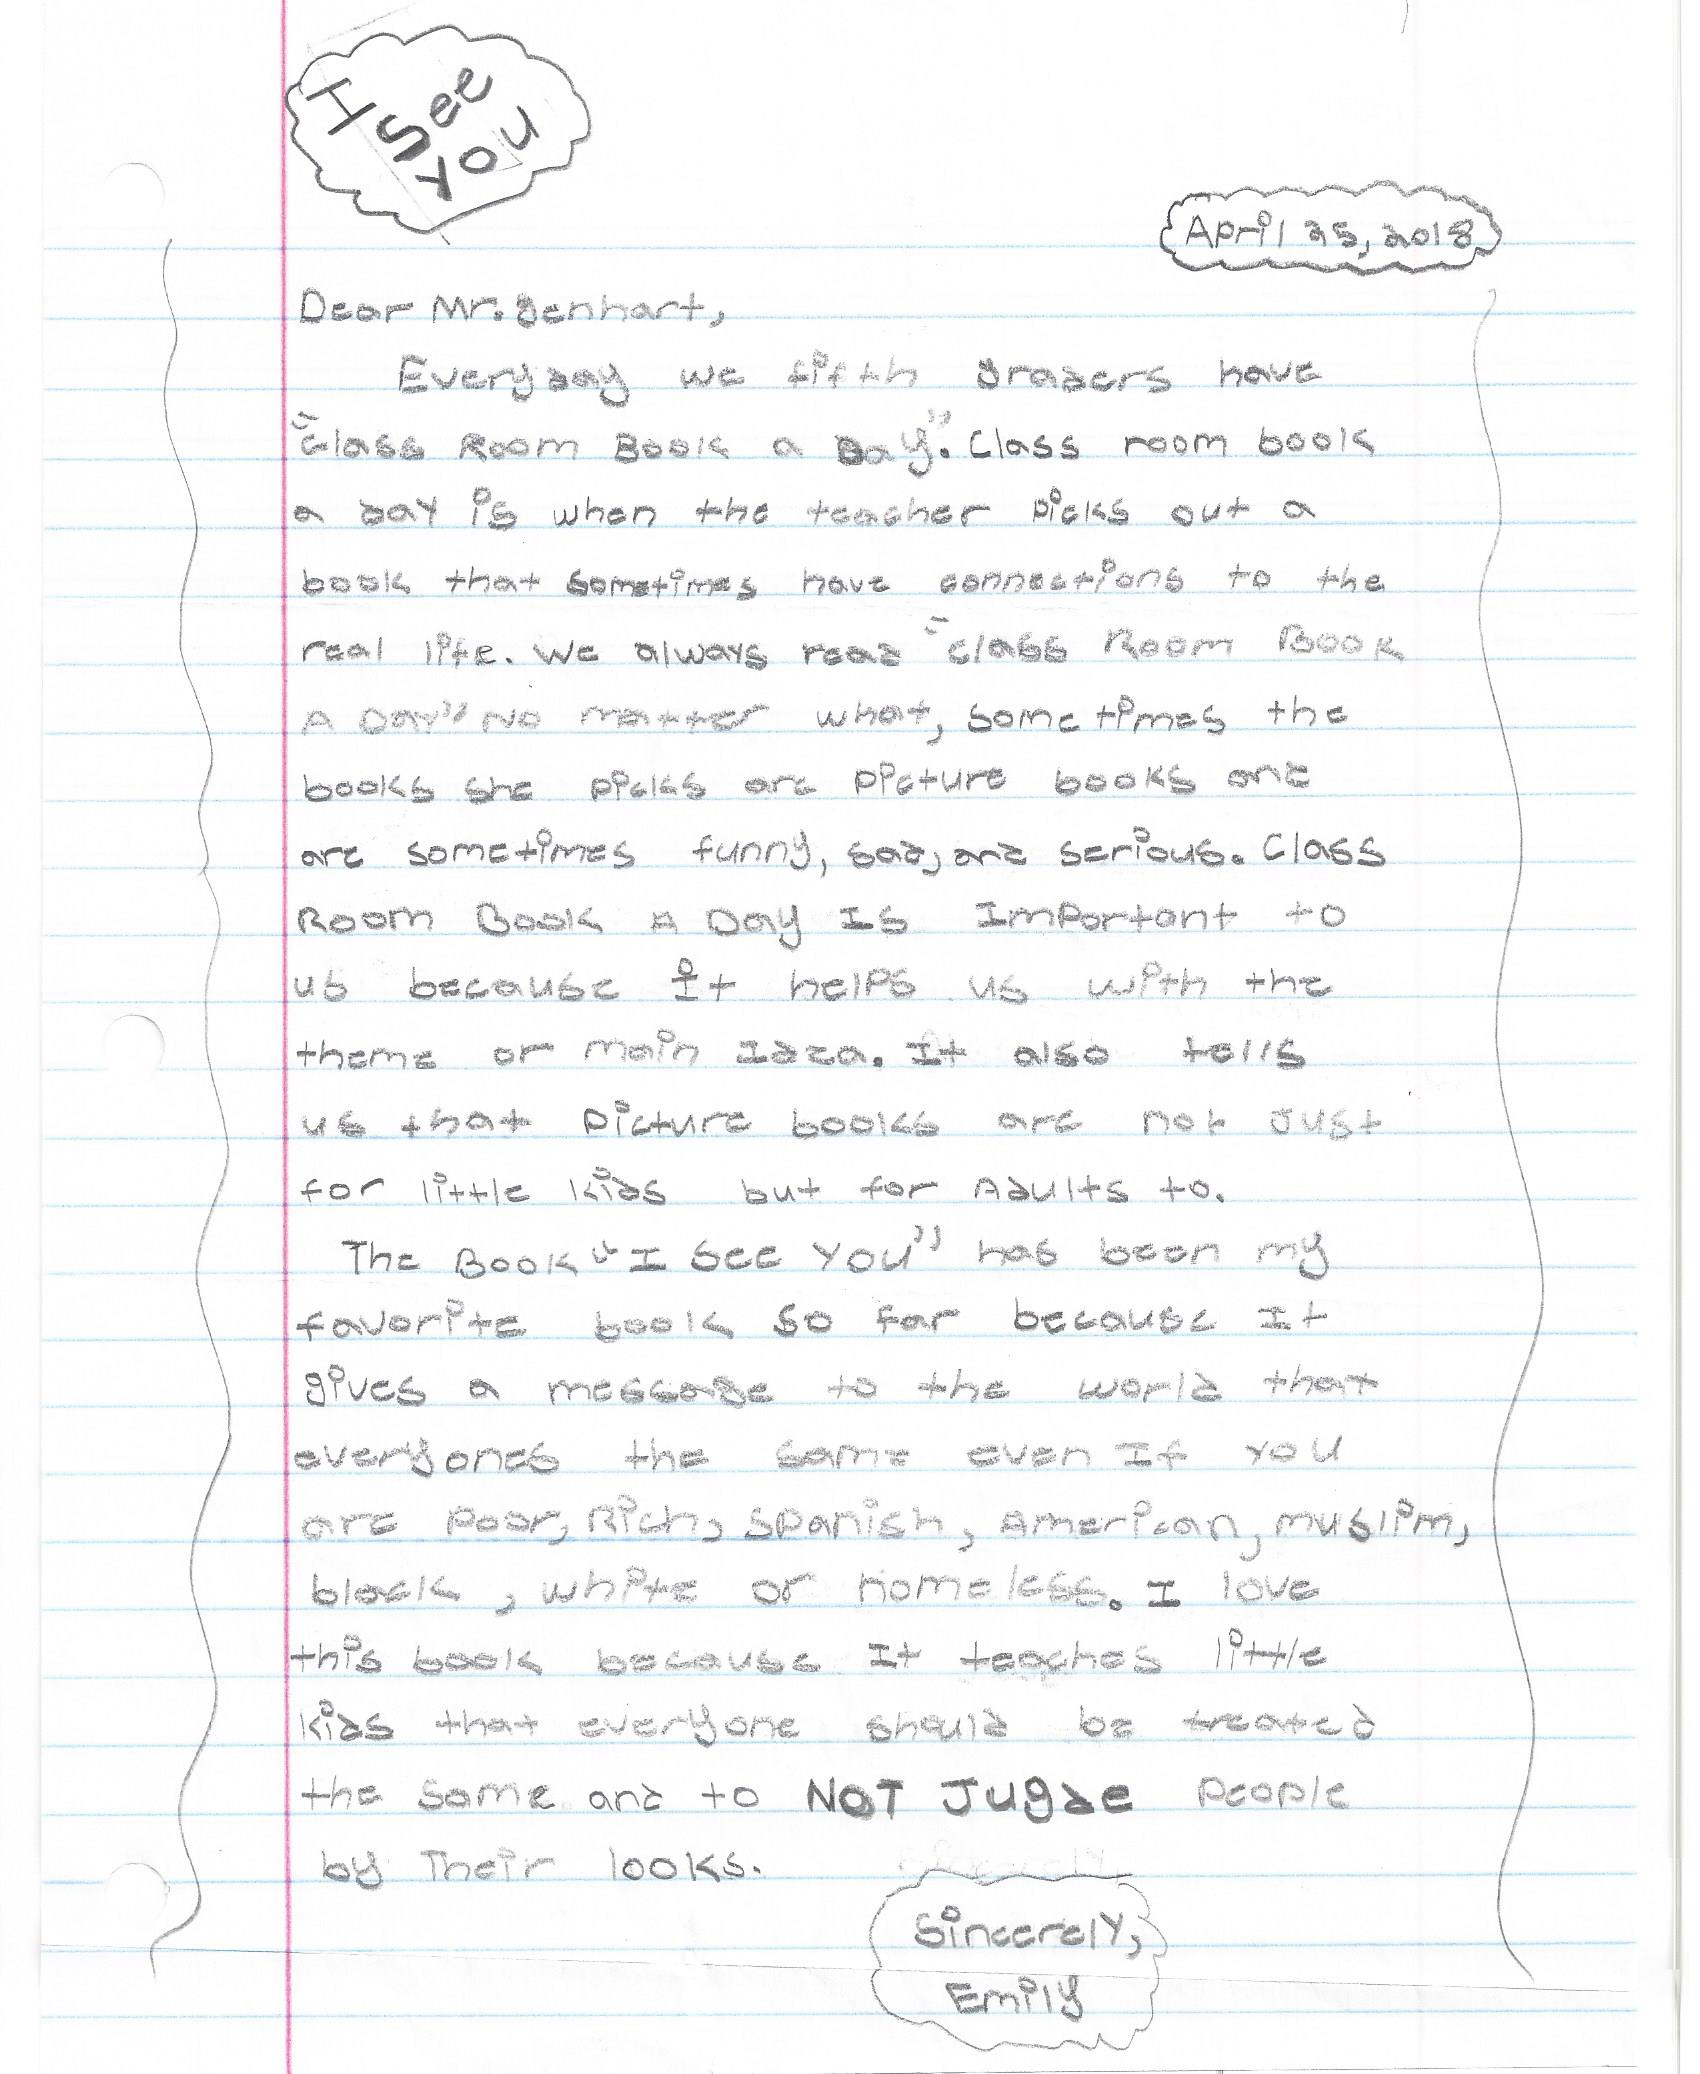 I
See
You
April 25, 2018
Dear Mr. Genhart,
Everyday we fifth graders have
"Class Room Book a Day". Class room book
a day is when the teacher picks out a
book that sometimes have connections to the
real life. We always read "Class Room Book
A Day" No matter what, sometimes the
books she picks are picture books and
are sometimes funny, sad, and serious. Class
Room Book A Day Is Important to
us because It helps us with the
theme or main Idea. It also tells
us that picture books are not just
for little kids but for Adults to.
The Book "I See You" has been my
favorite book so far because It
gives a message to the world that
everyones the same even If you
are poor, Rich, Spanish, American, muslim,
black, white or homeless. I love
this book because It teaches little
kids that everyone should be treated
the same and to NOT Jugde people
by Their looks.
Sincerely,
Emily